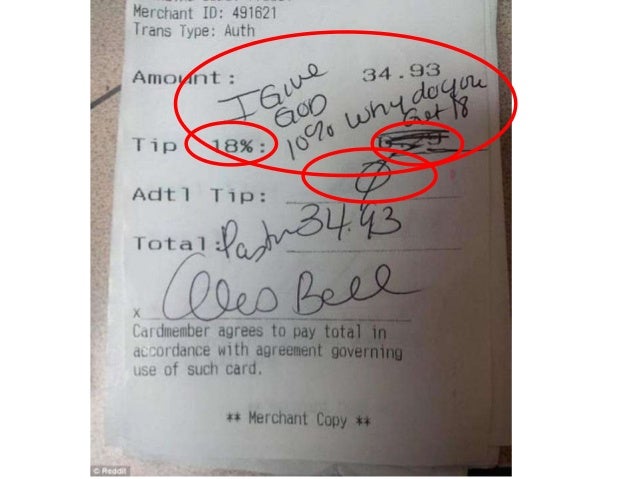 Merchant ID: 491621
Trans Type: Auth
Amount: 34.93
I Give
GOD
10% why do you
Get 18
Tip 18%:
Adtl Tip: Ø
Total: Pastor 34.93
x Alois Bell
Cardmember agrees to pay total in
accordance with agreement governing
use of such card.
** Merchant Copy **
© Reddit